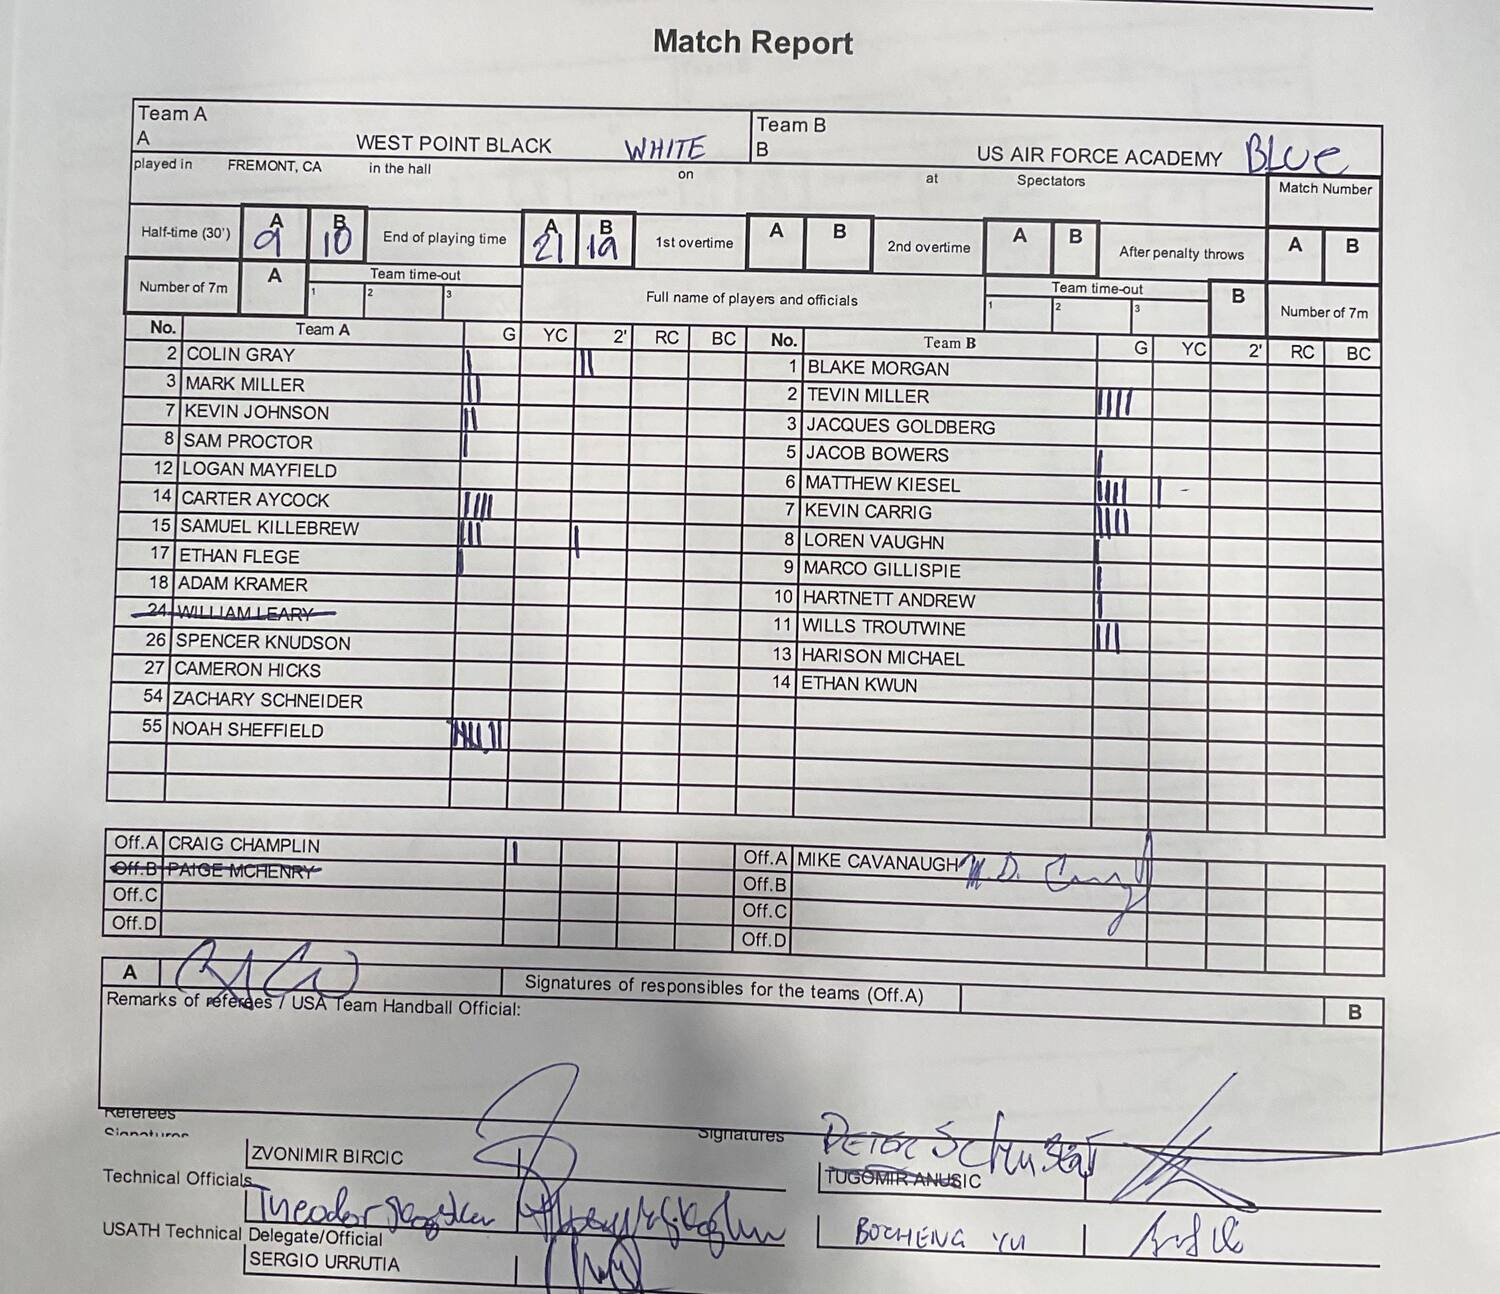 Match Report
Team A
A WEST POINT BLACK WHITE
Team B
B US AIR FORCE ACADEMY BLUE
played in FREMONT, CA in the hall on at Spectators
Match Number
Half-time (30') A 9 B 10 End of playing time A 21 B 19 1st overtime A B 2nd overtime A B After penalty throws A B
Number of 7m A Team time-out 1 2 3 Full name of players and officials Team time-out 1 2 3 B Number of 7m
No. Team A G YC 2' RC BC No. Team B G YC 2' RC BC
2 COLIN GRAY 1 BLAKE MORGAN
3 MARK MILLER 2 TEVIN MILLER
7 KEVIN JOHNSON 3 JACQUES GOLDBERG
8 SAM PROCTOR 5 JACOB BOWERS
12 LOGAN MAYFIELD 6 MATTHEW KIESEL
14 CARTER AYCOCK 7 KEVIN CARRIG
15 SAMUEL KILLEBREW 8 LOREN VAUGHN
17 ETHAN FLEGE 9 MARCO GILLISPIE
18 ADAM KRAMER 10 HARTNETT ANDREW
24 WILLIAM LEARY 11 WILLS TROUTWINE
26 SPENCER KNUDSON 13 HARISON MICHAEL
27 CAMERON HICKS 14 ETHAN KWUN
54 ZACHARY SCHNEIDER
55 NOAH SHEFFIELD
Off.A CRAIG CHAMPLIN Off.A MIKE CAVANAUGH
Off.B PAIGE MCHENRY Off.B
Off.C Off.C
Off.D Off.D
A Signatures of responsibles for the teams (Off.A) B
Remarks of referees / USA Team Handball Official:
Referees
Signatures Signatures PETER
ZVONIMIR BIRCIC TUGOMIR ANUSIC
Technical Officials
Theodor BOCHENG YU
USATH Technical Delegate/Official
SERGIO URRUTIA